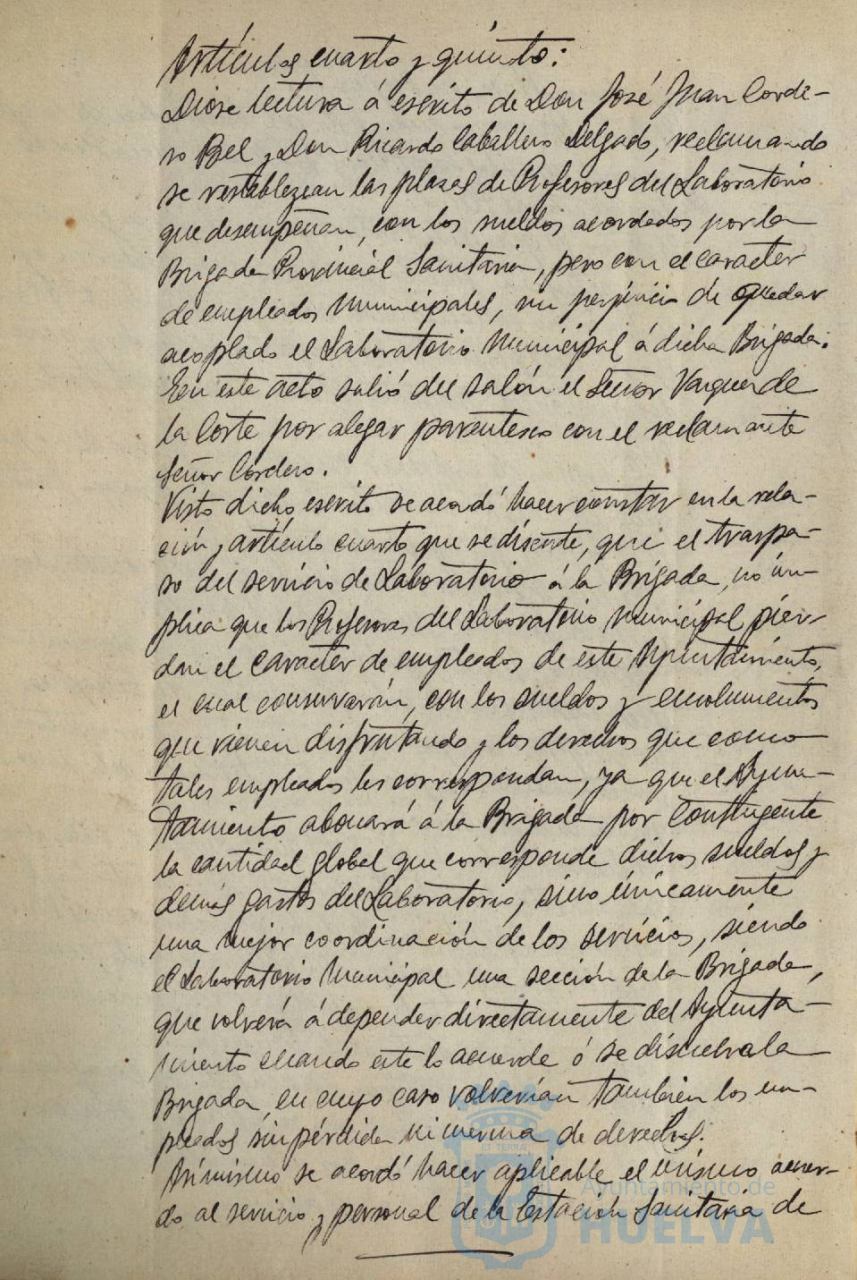 Artículos cuarto y quinto:
Dióse lectura á escrito de Don José Juan Corde-
ro Bel y Don Ricardo Caballero Delgado, reclamando
se restablezcan las plazas de Profesores del Laboratorio
que desempeñan, con los sueldos acordados por la
Brigada Provincial Sanitaria, pero con el caracter
de empleados Municipales, sin perjuicio de quedar
acoplado el Laboratorio Municipal á dicha Brigada.
En este acto salió del salón el Señor Vazquez de
la Corte por alegar parentesco con el reclamante
Señor Cordero.
Visto dicho escrito se acordó hacer constar en la rela-
ción y artículo cuarto que se discute, que el traspa-
so del servicio de Laboratorio á la Brigada, no im-
plica que los Profesores del Laboratorio Municipal pier-
dan el caracter de empleados de este Ayuntamiento,
el cual conservarán, con los sueldos y emolumentos
que vienen disfrutando y los derechos que como
tales empleados les correspondan, ya que el Ayun-
tamiento abonará á la Brigada por Contingente
la cantidad global que corresponde dichos sueldos y
demás gastos del Laboratorio, sino únicamente
una mejor coordinación de los servicios, siendo
el Laboratorio Municipal una sección de la Brigada,
que volverá á depender directamente del Ayunta-
miento cuando este lo acuerde ó se disuelva la
Brigada, en cuyo caso volverían también los em-
pleados sin pérdida ni merma de derechos.
Asimismo se acordó hacer aplicable el mismo acuer-
do al servicio y personal de la Estación Sanitaria de
Ayuntamiento de
HUELVA